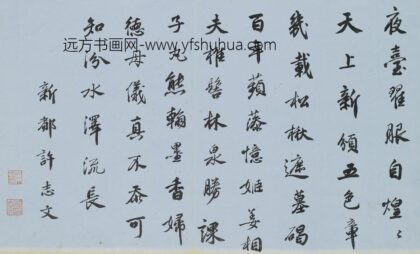 远方书画网-www.yfshuhua.com
夜臺翟服自煌〻
天上新頒五色章
幾載松楸遮墓碣
百年蘋藻憶姬姜相
夫椎髻林泉勝課
子丸熊翰墨香婦
德母儀真不忝可
知汾水澤流長
新都許志文